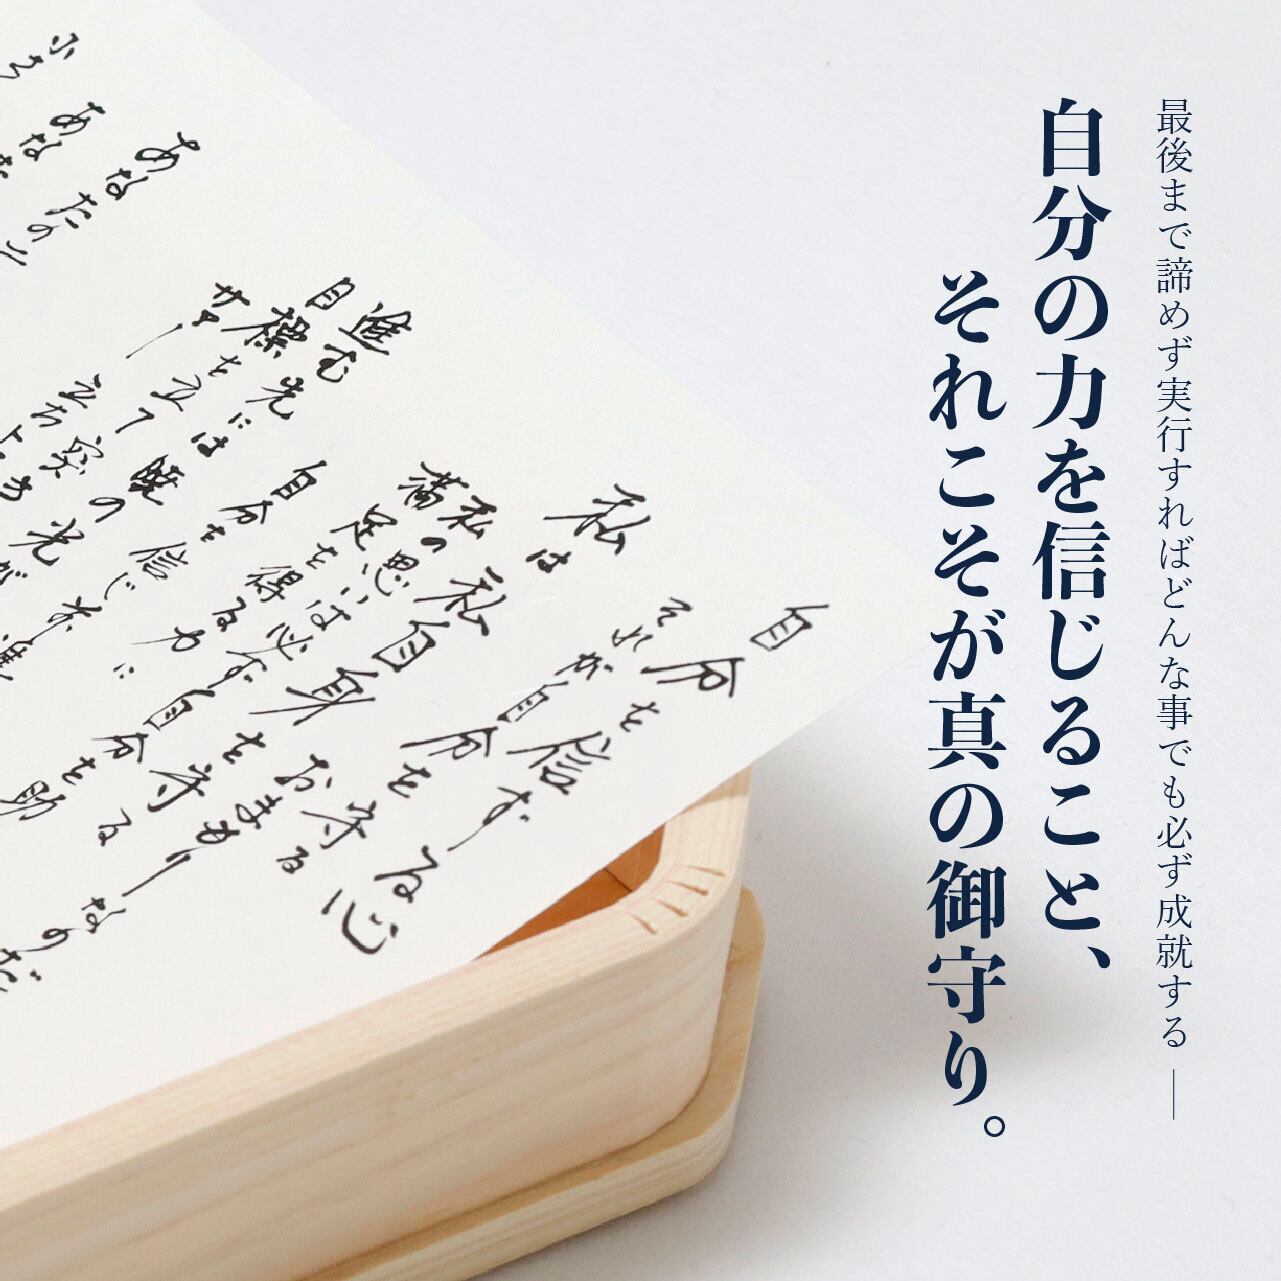 最後まで諦めず実行すればどんな事でも必ず成就する ―
自分の力を信じること、
それこそが真の御守り。
自分を信ずる心
それが自分を守る
おまもりなのだ
私は私自身を守る
私の思いは必ず自分を助
満足を得る力に
自分を信じ
進む先には
目標を立て暁の光が
立ち
あなたの
あなた